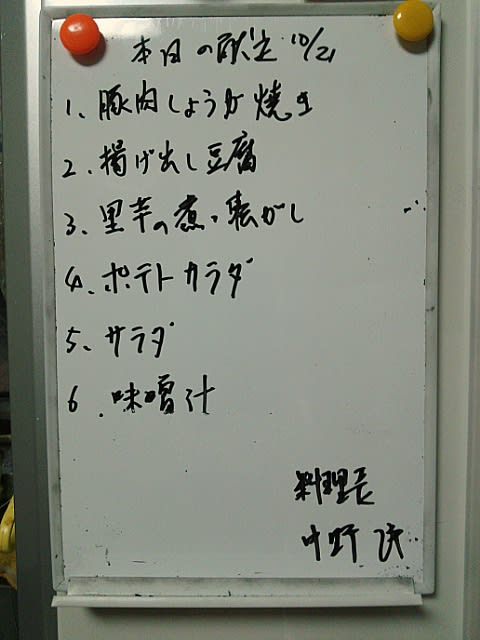 本日の献立 10/21
1、豚肉しょうが焼き
2、揚げ出し豆腐
3、里芋の煮っ転がし
4、ポテトサラダ
5、サラダ
6、味噌汁
料理長
中野